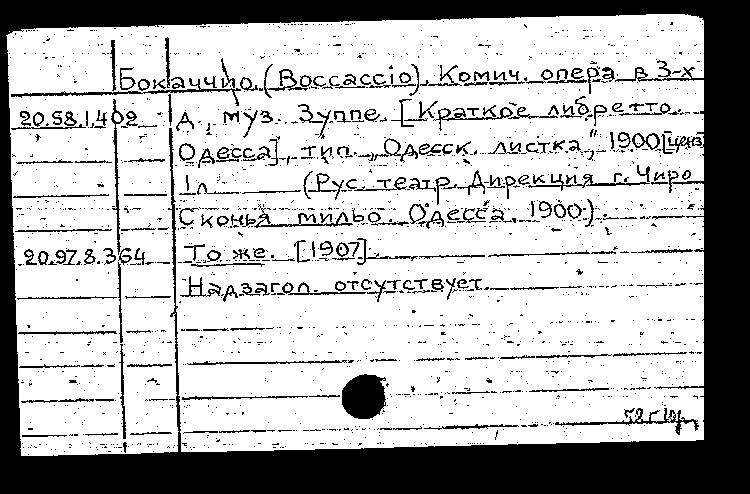 Бокаччио. (Boccaccio). Комич. опера в 3-х
20.58.1.402 д. муз. Зуппе. [Краткое либретто.
Одесса], тип. „Одесск. листка“, 1900 [ценз]
1 л (Рус. театр. Дирекция г. Чиро
Сконья мильо. Одесса. 1900).
20.97.8.364 То же. [1907].
Надзагол. отсутствует.
52 г